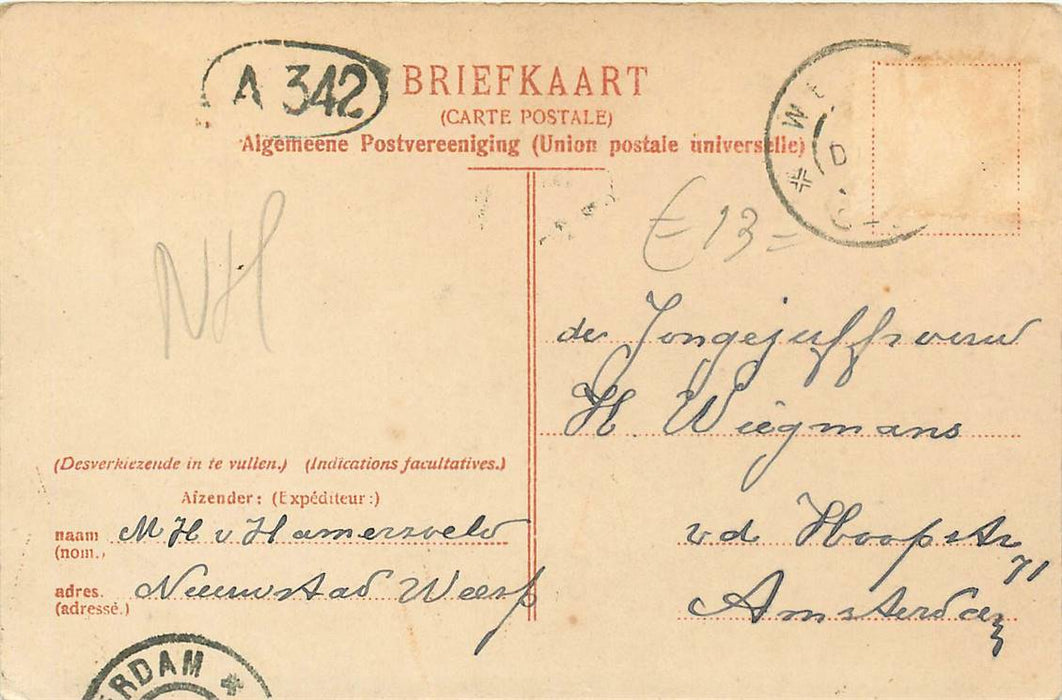 A 342
BRIEFKAART
(CARTE POSTALE)
Algemeene Postvereeniging (Union postale universelle)
NH
£ 13=
de Jongejuffrouw
H. Wiegmans
vd Hoopstr 71
Amsterdam
(Desverkiezende in te vullen.) (Indications facultatives.)
Afzender: (Expéditeur:)
naam M H v Hamersveld
(nom.)
adres. Nieuwstad Weesp
(adressé.)
ERDAM